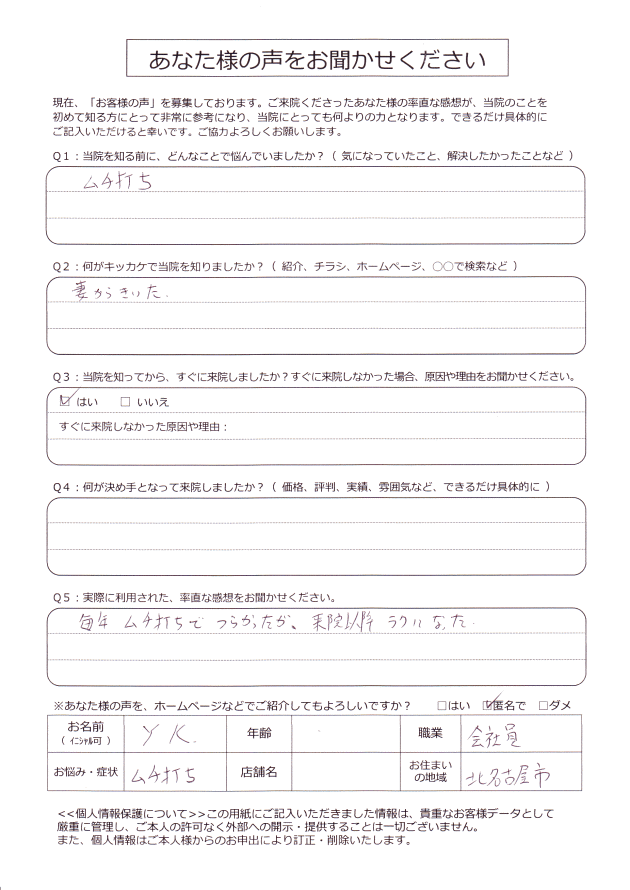 あなた様の声をお聞かせください
現在、「お客様の声」を募集しております。ご来院くださったあなた様の率直な感想が、当院のことを
初めて知る方にとって非常に参考になり、当院にとっても何よりの力となります。できるだけ具体的に
ご記入いただけると幸いです。ご協力よろしくお願いします。
Q1：当院を知る前に、どんなことで悩んでいましたか？（ 気になっていたこと、解決したかったことなど ）
ムチ打ち
Q2：何がキッカケで当院を知りましたか？（ 紹介、チラシ、ホームページ、○○で検索など ）
妻からきいた.
Q3：当院を知ってから、すぐに来院しましたか？すぐに来院しなかった場合、原因や理由をお聞かせください。
☑ はい □ いいえ
すぐに来院しなかった原因や理由：
Q4：何が決め手となって来院しましたか？（ 価格、評判、実績、雰囲気など、できるだけ具体的に ）
Q5：実際に利用された、率直な感想をお聞かせください。
毎年 ムチ打ちで つらかったが、来院以降 ラクになった.
※あなた様の声を、ホームページなどでご紹介してもよろしいですか？ □はい ☑匿名で □ダメ
お名前 （ｲﾆｼｬﾙ可） Y K. 年齢 職業 会社員
お悩み・症状 ムチ打ち 店舗名 お住まいの地域 北名古屋市
<<個人情報保護について>>この用紙にご記入いただきました情報は、貴重なお客様データとして
厳重に管理し、ご本人の許可なく外部への開示・提供することは一切ございません。
また、個人情報はご本人様からのお申出により訂正・削除いたします。